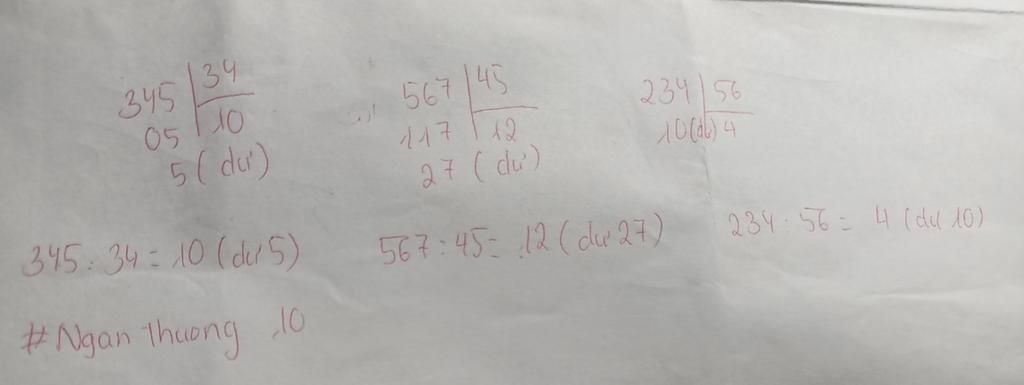 345 34 567 45 234 56
05 10 117 12 10(dư) 4
5 (dư) 27 (dư)
345 : 34 = 10 (dư 5) 567 : 45 = 12 (dư 27) 234 : 56 = 4 (dư 10)
#Ngan Thuong 10